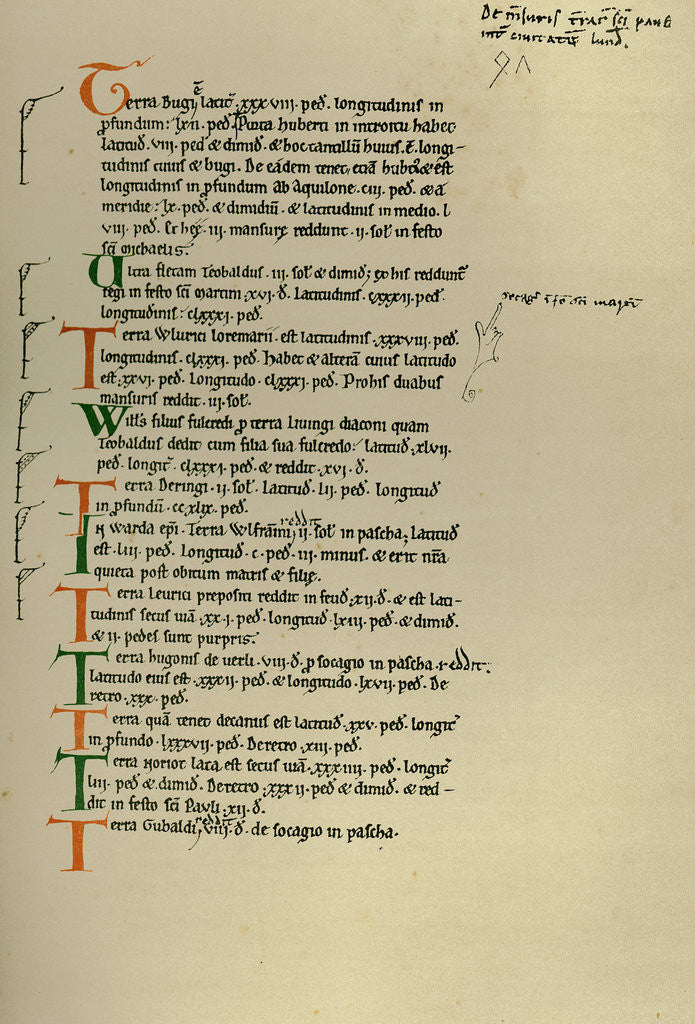 De mēsuris t̄raꝝ s̄ci pauli
int̄ ciuitatē lund̄.
Terra Bugi ē latit̄ .xxxviii. ped̄. longitudinis in
ꝓfundum: lxii. ped̄. Porta huberti in introitu habet
latitud̄. viii. ped̄ & dimid̄. & hoc cantallū huius .ē. longi-
tudinis cuius & bugi. De eadem tenet, etiā hubt̄, & est
longitudinis in ꝓfundum ab Aquilone .ciii. ped̄. & a
meridie: lx. ped̄. & dimidiū. & latitudinis in medio. l
viii. ped̄. Et hęc .iii. mansurę reddunt .ii. sol̄ in festo
sc̄i Michaelis.
Ultra fletam Teobaldus .iii. sol̄ & dimid̄; ex his reddunt̄
regi in festo sc̄i Martini .xvi. d̄. Latitudinis .cxxxii. ped̄.
longitudinis: clxxxi. ped̄.
Terra Wlurici loremarii. est latitudinis .xxxviii. ped̄.
longitudinis. clxxxi. ped̄. Habet & alterā cuius latitudo
est .xxvi. ped̄. Longitudo. clxxxi. ped̄. Pro his duabus
mansuris reddit .iii. sol̄.
Will̄s filius fulcredi ꝓ terra Liuingi diaconi quam
Teobaldus dedit cum filia sua fulcredo: latitud̄ .xlvii.
ped̄. longit̄. clxxxi. ped̄. & reddit .xvi. d̄.
Terra Deringi. ii. sol̄. Latitud̄. lii. ped̄. Longitud̄
in ꝓfundū. ccxlix. ped̄.
In Warda ep̄i. Terra Wlframi reddit ii. sol̄ in pascha, Latitud̄
est. liii. ped̄. Longitud̄. c. ped̄. iii. minus. & erit nr̄a
quieta post obitum matris & filię.
Terra leurici prepositi reddit in feud̄ .xii. d̄. & est lati-
tudinis secus uiā .xx.i. ped̄. longitud̄. lxiii. ped̄. & dimid̄.
& ii. pedes sunt purpris.
Terra hugonis de uerli. viii. d̄. ꝓ socagio in pascha. reddit.
Latitudo eius est .xxxii. ped̄. & longitudo. lxvii. ped̄. De
retro .xxx. ped̄.
Terra quā tenet decanus est latitud̄ .xxv. ped̄. longit̄
in ꝓfundo. lxxxvii. ped̄. De retro .xiii. ped̄.
Terra Noriot lata est secus uiā .xxxiiii. ped̄. longit̄
liii. ped̄ & dimid̄. De retro .xxxii. ped̄ & dimid̄. & red-
dit in festo sc̄i Pauli .xii. d̄.
Terra Gubaldi, reddit viii. d̄. de socagio in pascha.